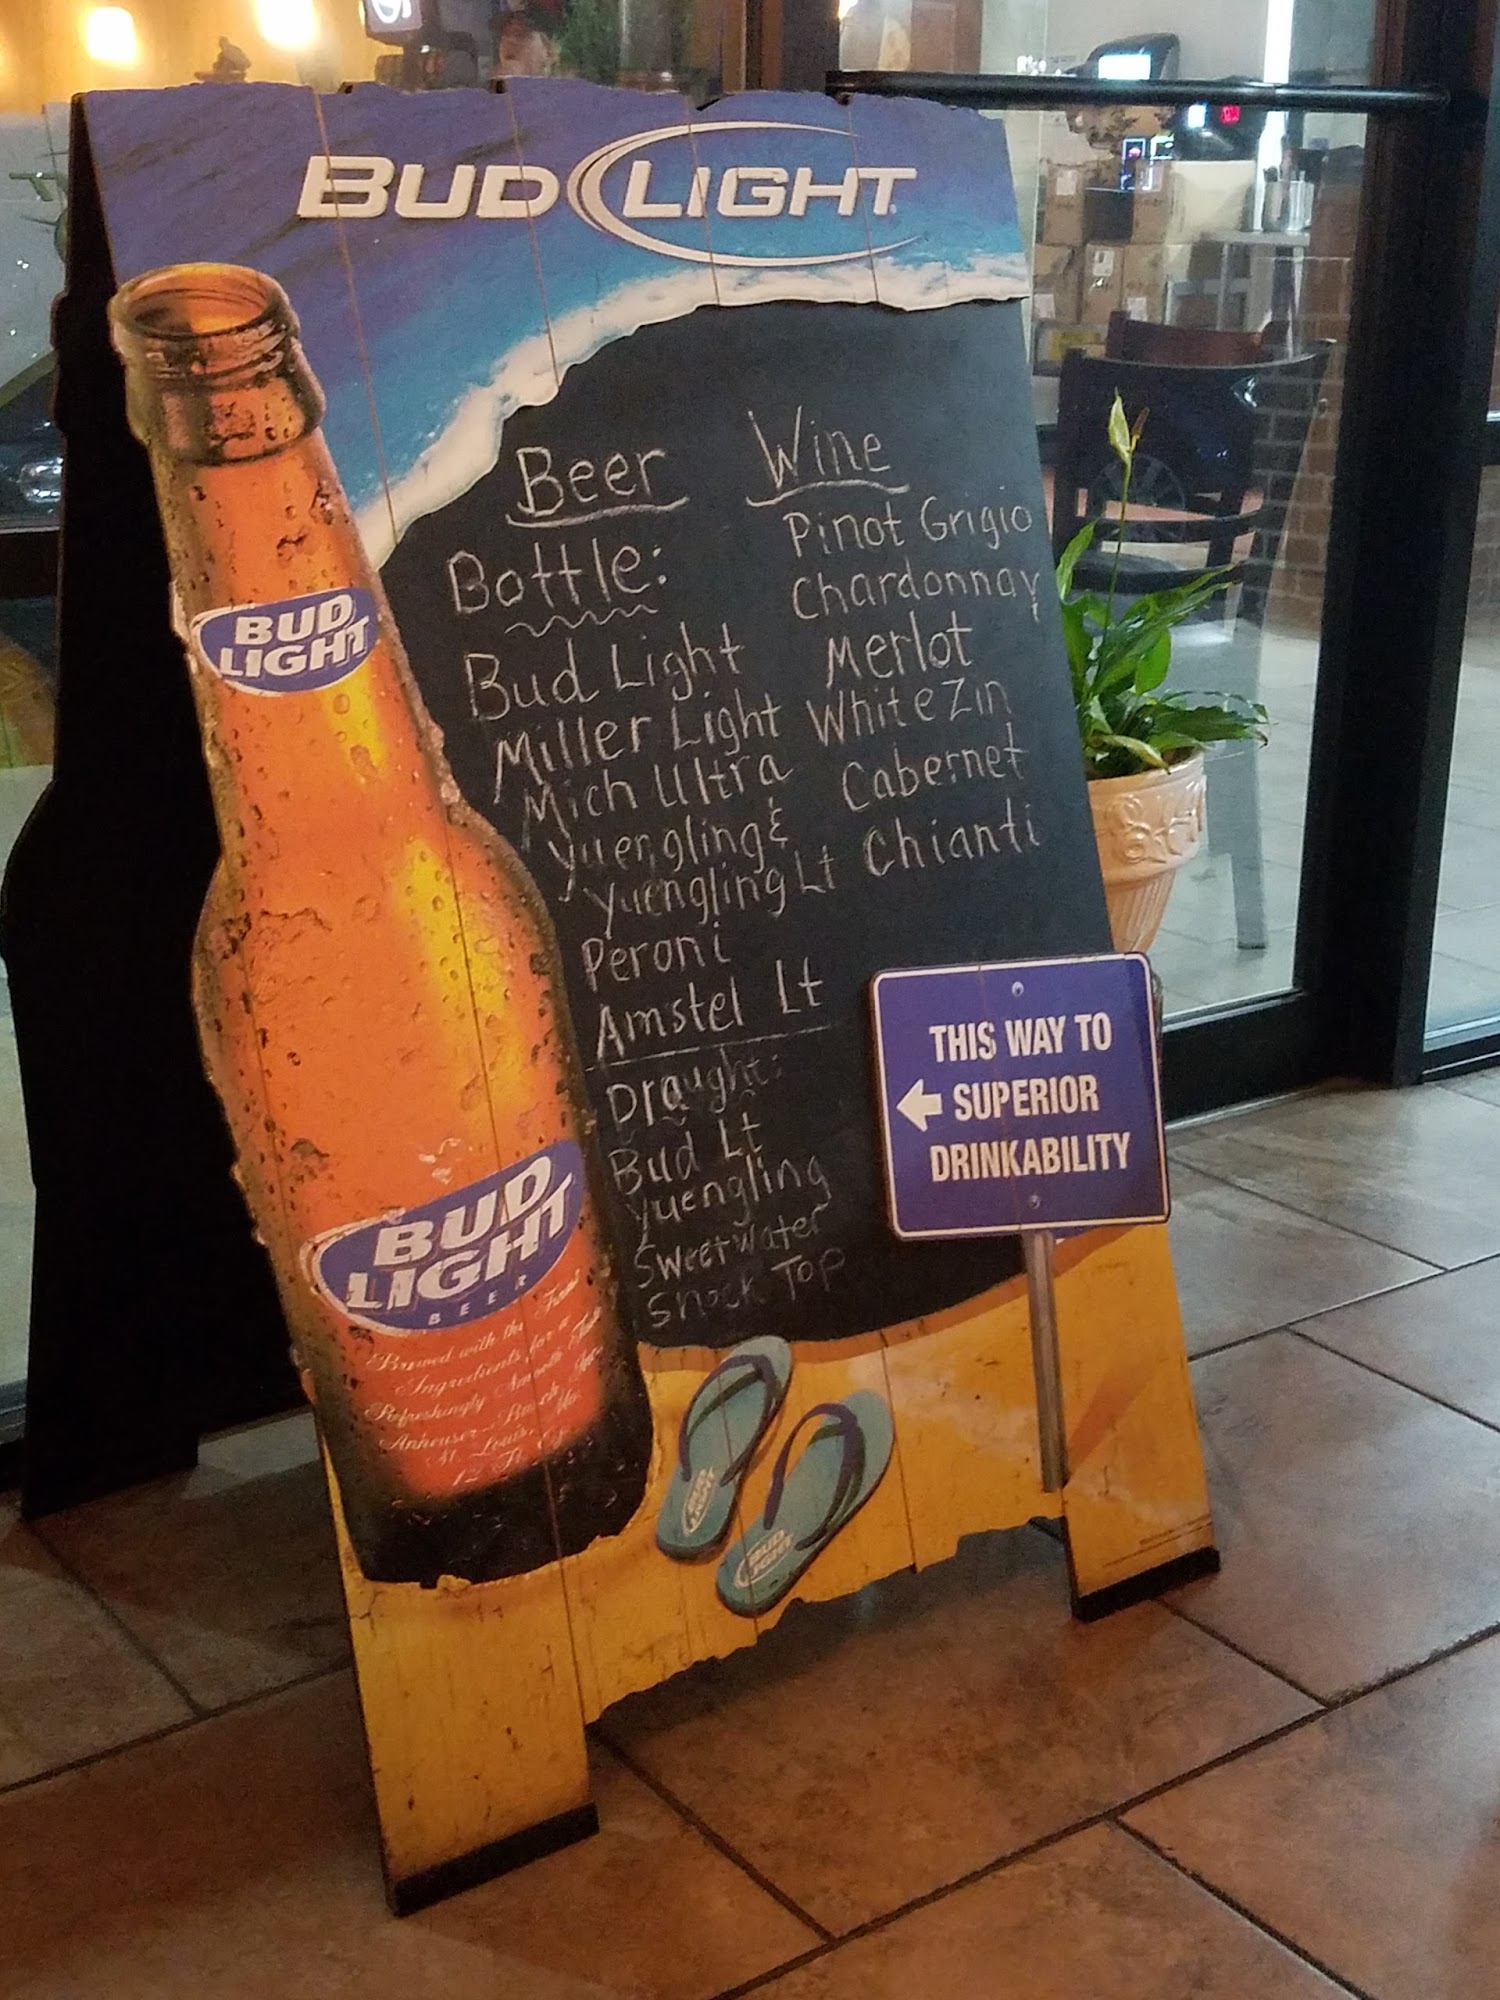 BUD LIGHT
Beer
Bottle:
Bud Light
Miller Light
Mich Ultra
Yuengling &
Yuengling Lt
Peroni
Amstel Lt
Draught:
Bud Lt
Yuengling
Sweetwater
Shock Top
Wine
Pinot Grigio
Chardonnay
Merlot
White Zin
Cabernet
Chianti
BUD
LIGHT
BUD
LIGHT
BEER
Brewed with the Finest
Ingredients for a
Refreshingly Smooth Taste
Anheuser-Busch, Inc.
St. Louis, Mo.
THIS WAY TO
SUPERIOR
DRINKABILITY
BUD
LIGHT
BUD
LIGHT